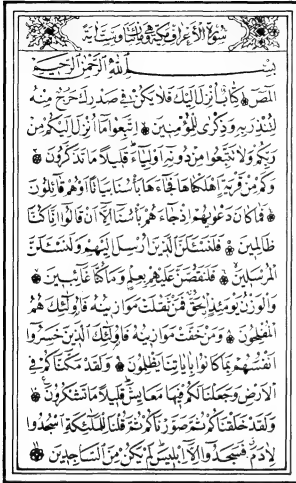 سورة الأعراف مكية وهي مائتان وست آية
بسم الله الرحمن الرحيم
المص ۝ كتاب أنزل إليك فلا يكن في صدرك حرج منه
لتنذر به وذكرى للمؤمنين ۝ اتبعوا ما أنزل إليكم من
ربكم ولا تتبعوا من دونه أولياء قليلا ما تذكرون ۝
وكم من قرية أهلكناها فجاءها بأسنا بياتا أو هم قائلون
۝ فما كان دعويهم إذ جاءهم بأسنا إلا أن قالوا إنا كنا
ظالمين ۝ فلنسئلن الذين أرسل إليهم ولنسئلن
المرسلين ۝ فلنقصن عليهم بعلم وما كنا غائبين ۝
والوزن يومئذ الحق فمن ثقلت موازينه فأولئك هم
المفلحون ۝ ومن خفت موازينه فأولئك الذين خسروا
أنفسهم بما كانوا بآياتنا يظلمون ۝ ولقد مكناكم في
الأرض وجعلنا لكم فيها معايش قليلا ما تشكرون ۝
ولقد خلقناكم ثم صورناكم ثم قلنا للملئكة اسجدوا
لآدم فسجدوا إلا إبليس لم يكن من الساجدين ۝